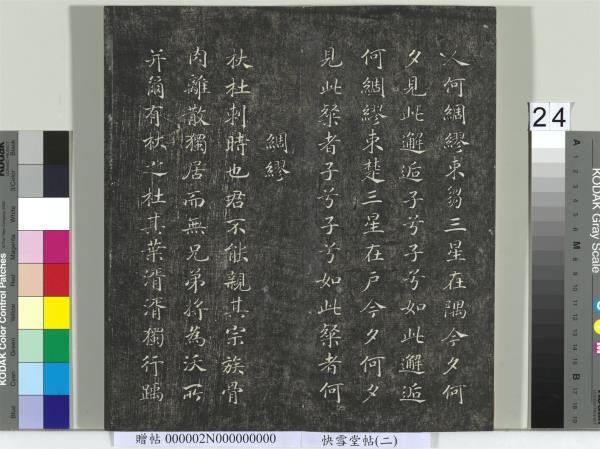 人何綢繆束芻三星在隅今夕何
夕見此邂逅子兮子兮如此邂逅
何綢繆束楚三星在戶今夕何夕
見此粲者子兮子兮如此粲者何
綢繆
杕杜刺時也君不能親其宗族骨
肉離散獨居而無兄弟將為沃所
并爾有杕之杜其葉湑湑獨行踽
24
贈帖 000002N000000000 快雪堂帖(二)
KODAK Color Control Patches
Blue Cyan Green Yellow Red Magenta White 3/Color Black
KODAK Gray Scale
A 1 2 3 4 5 6 M 8 9 10 11 12 13 14 15 B 17 18 19